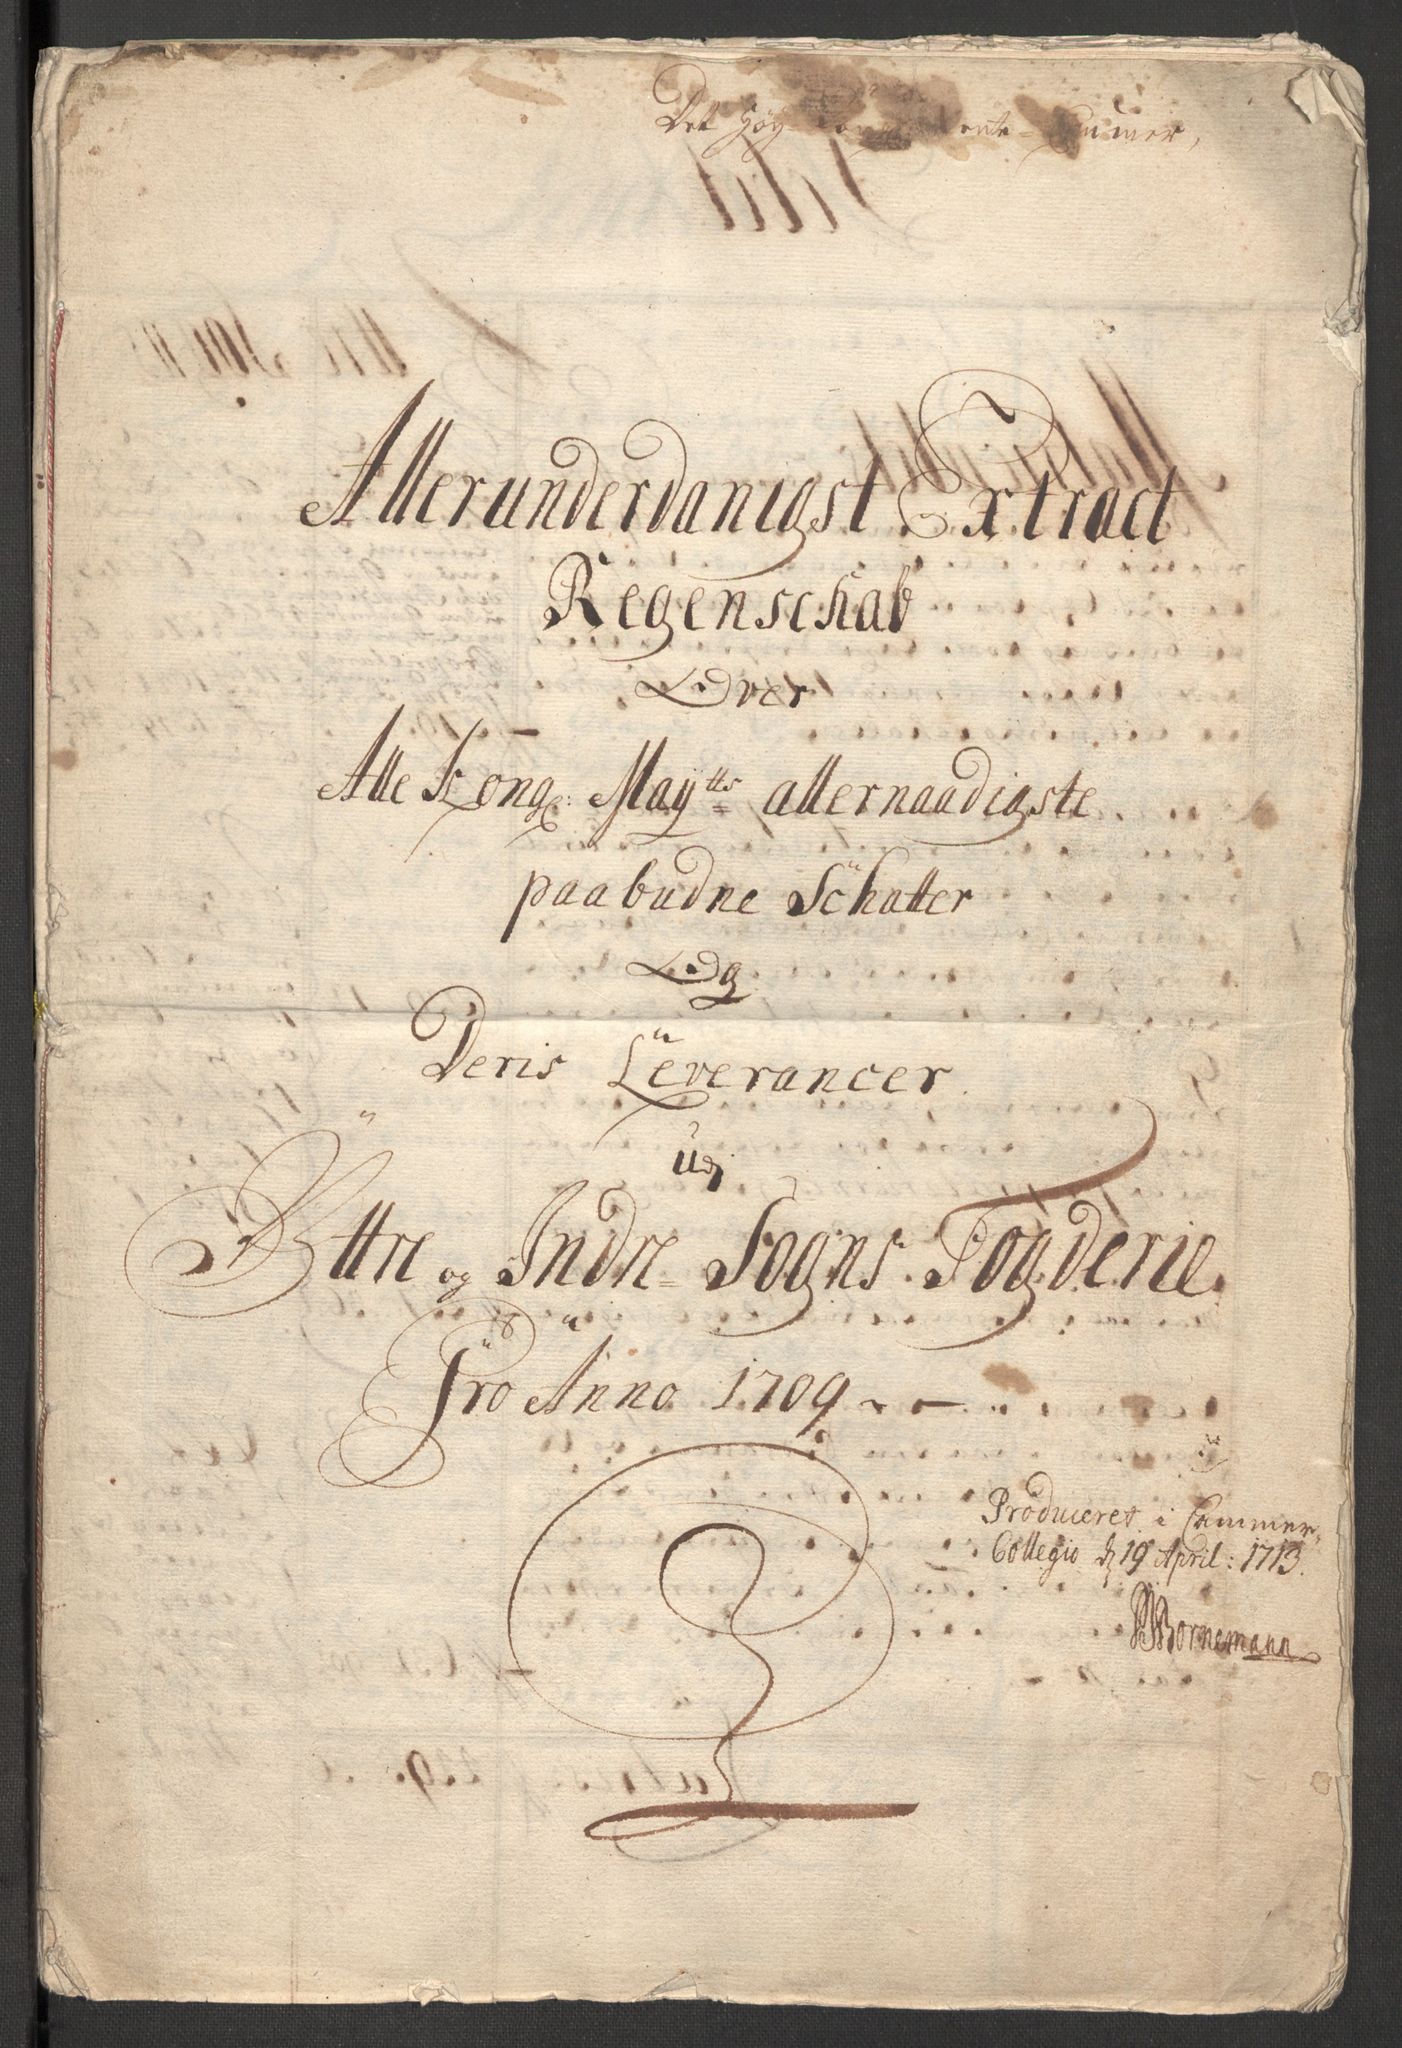 Det Høy Kong Rente-Cammer,
Allerunderdanigst Extract
Regenschab
Over
Alle Kong: Mayᵗᵗˢ allernaadigste
paabudne Schatter
Og
Deris Leverancer.
udj
Ÿttre og Indre-Sogns Fogderie
Pro Anno 1709
Produceret i Cammer-
Collegio d 19 April: 1713.
Bornemann